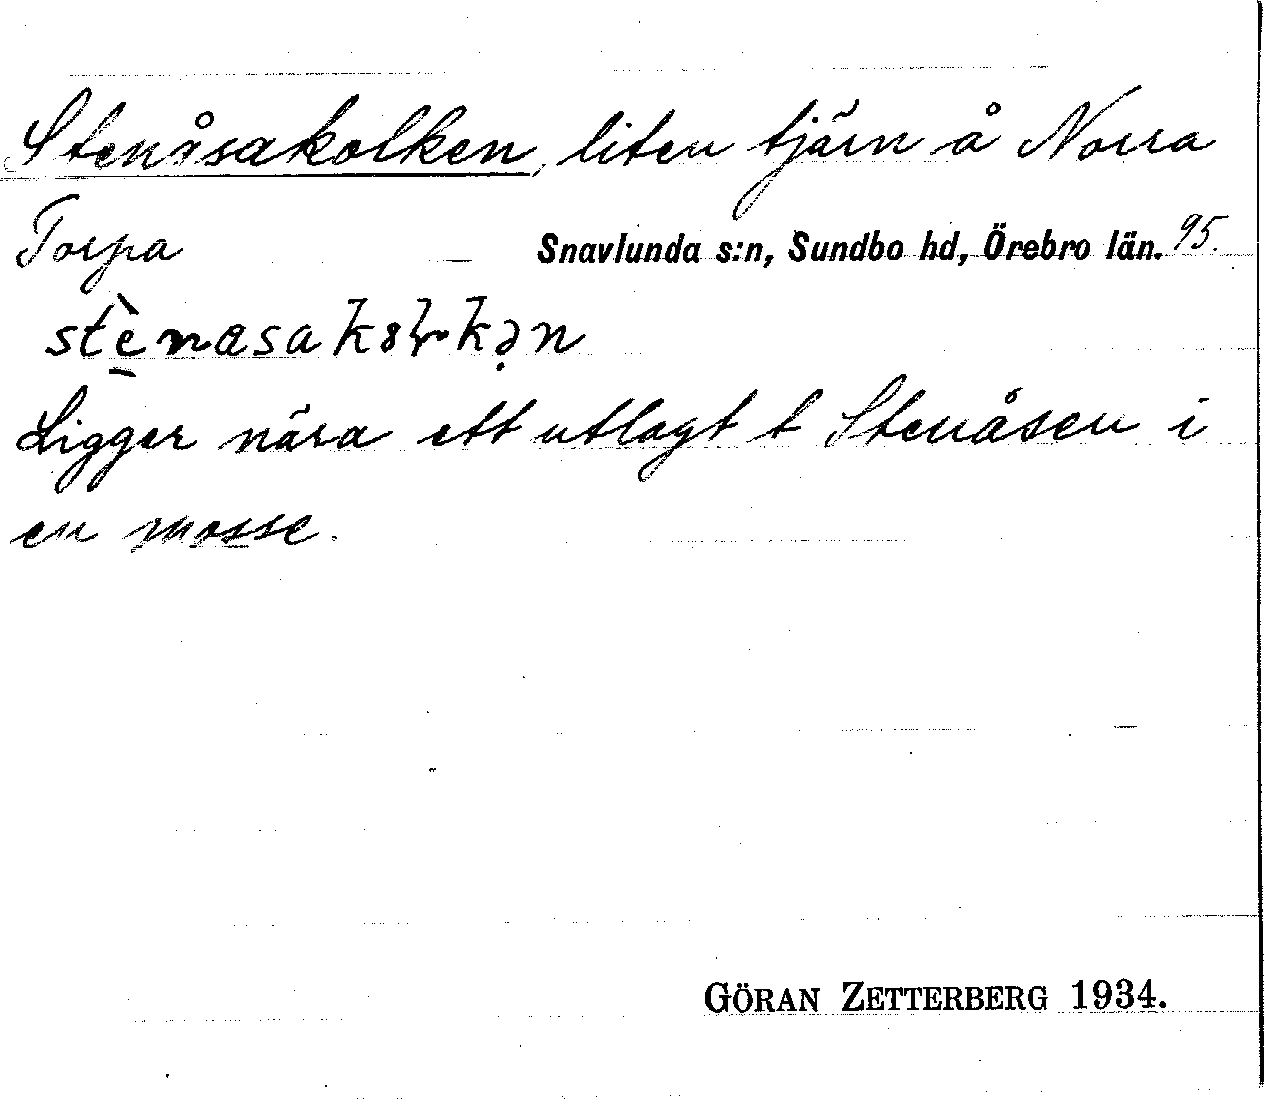 Stenåsakolken, liten tjärn å Norra
Torpa — Snavlunda s:n, Sundbo hd, Örebro län. 95.
Ligger nära ett utlagt t Stenåsen i
en mosse.
GÖRAN ZETTERBERG 1934.